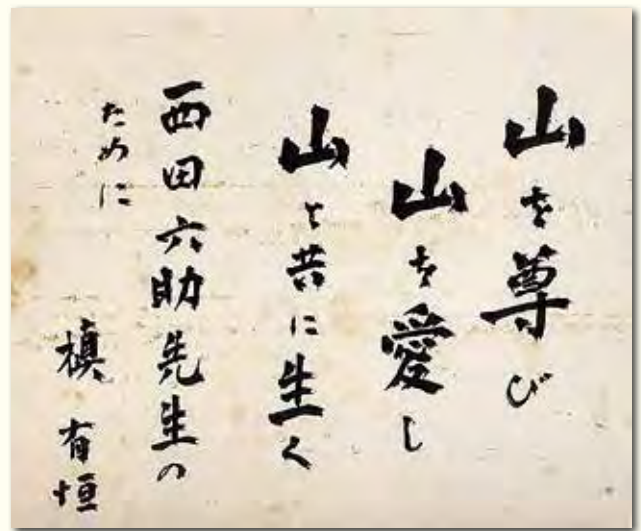 山を尊び
山を愛し
山と共に生く
西田六助先生の
ために
槇有恒